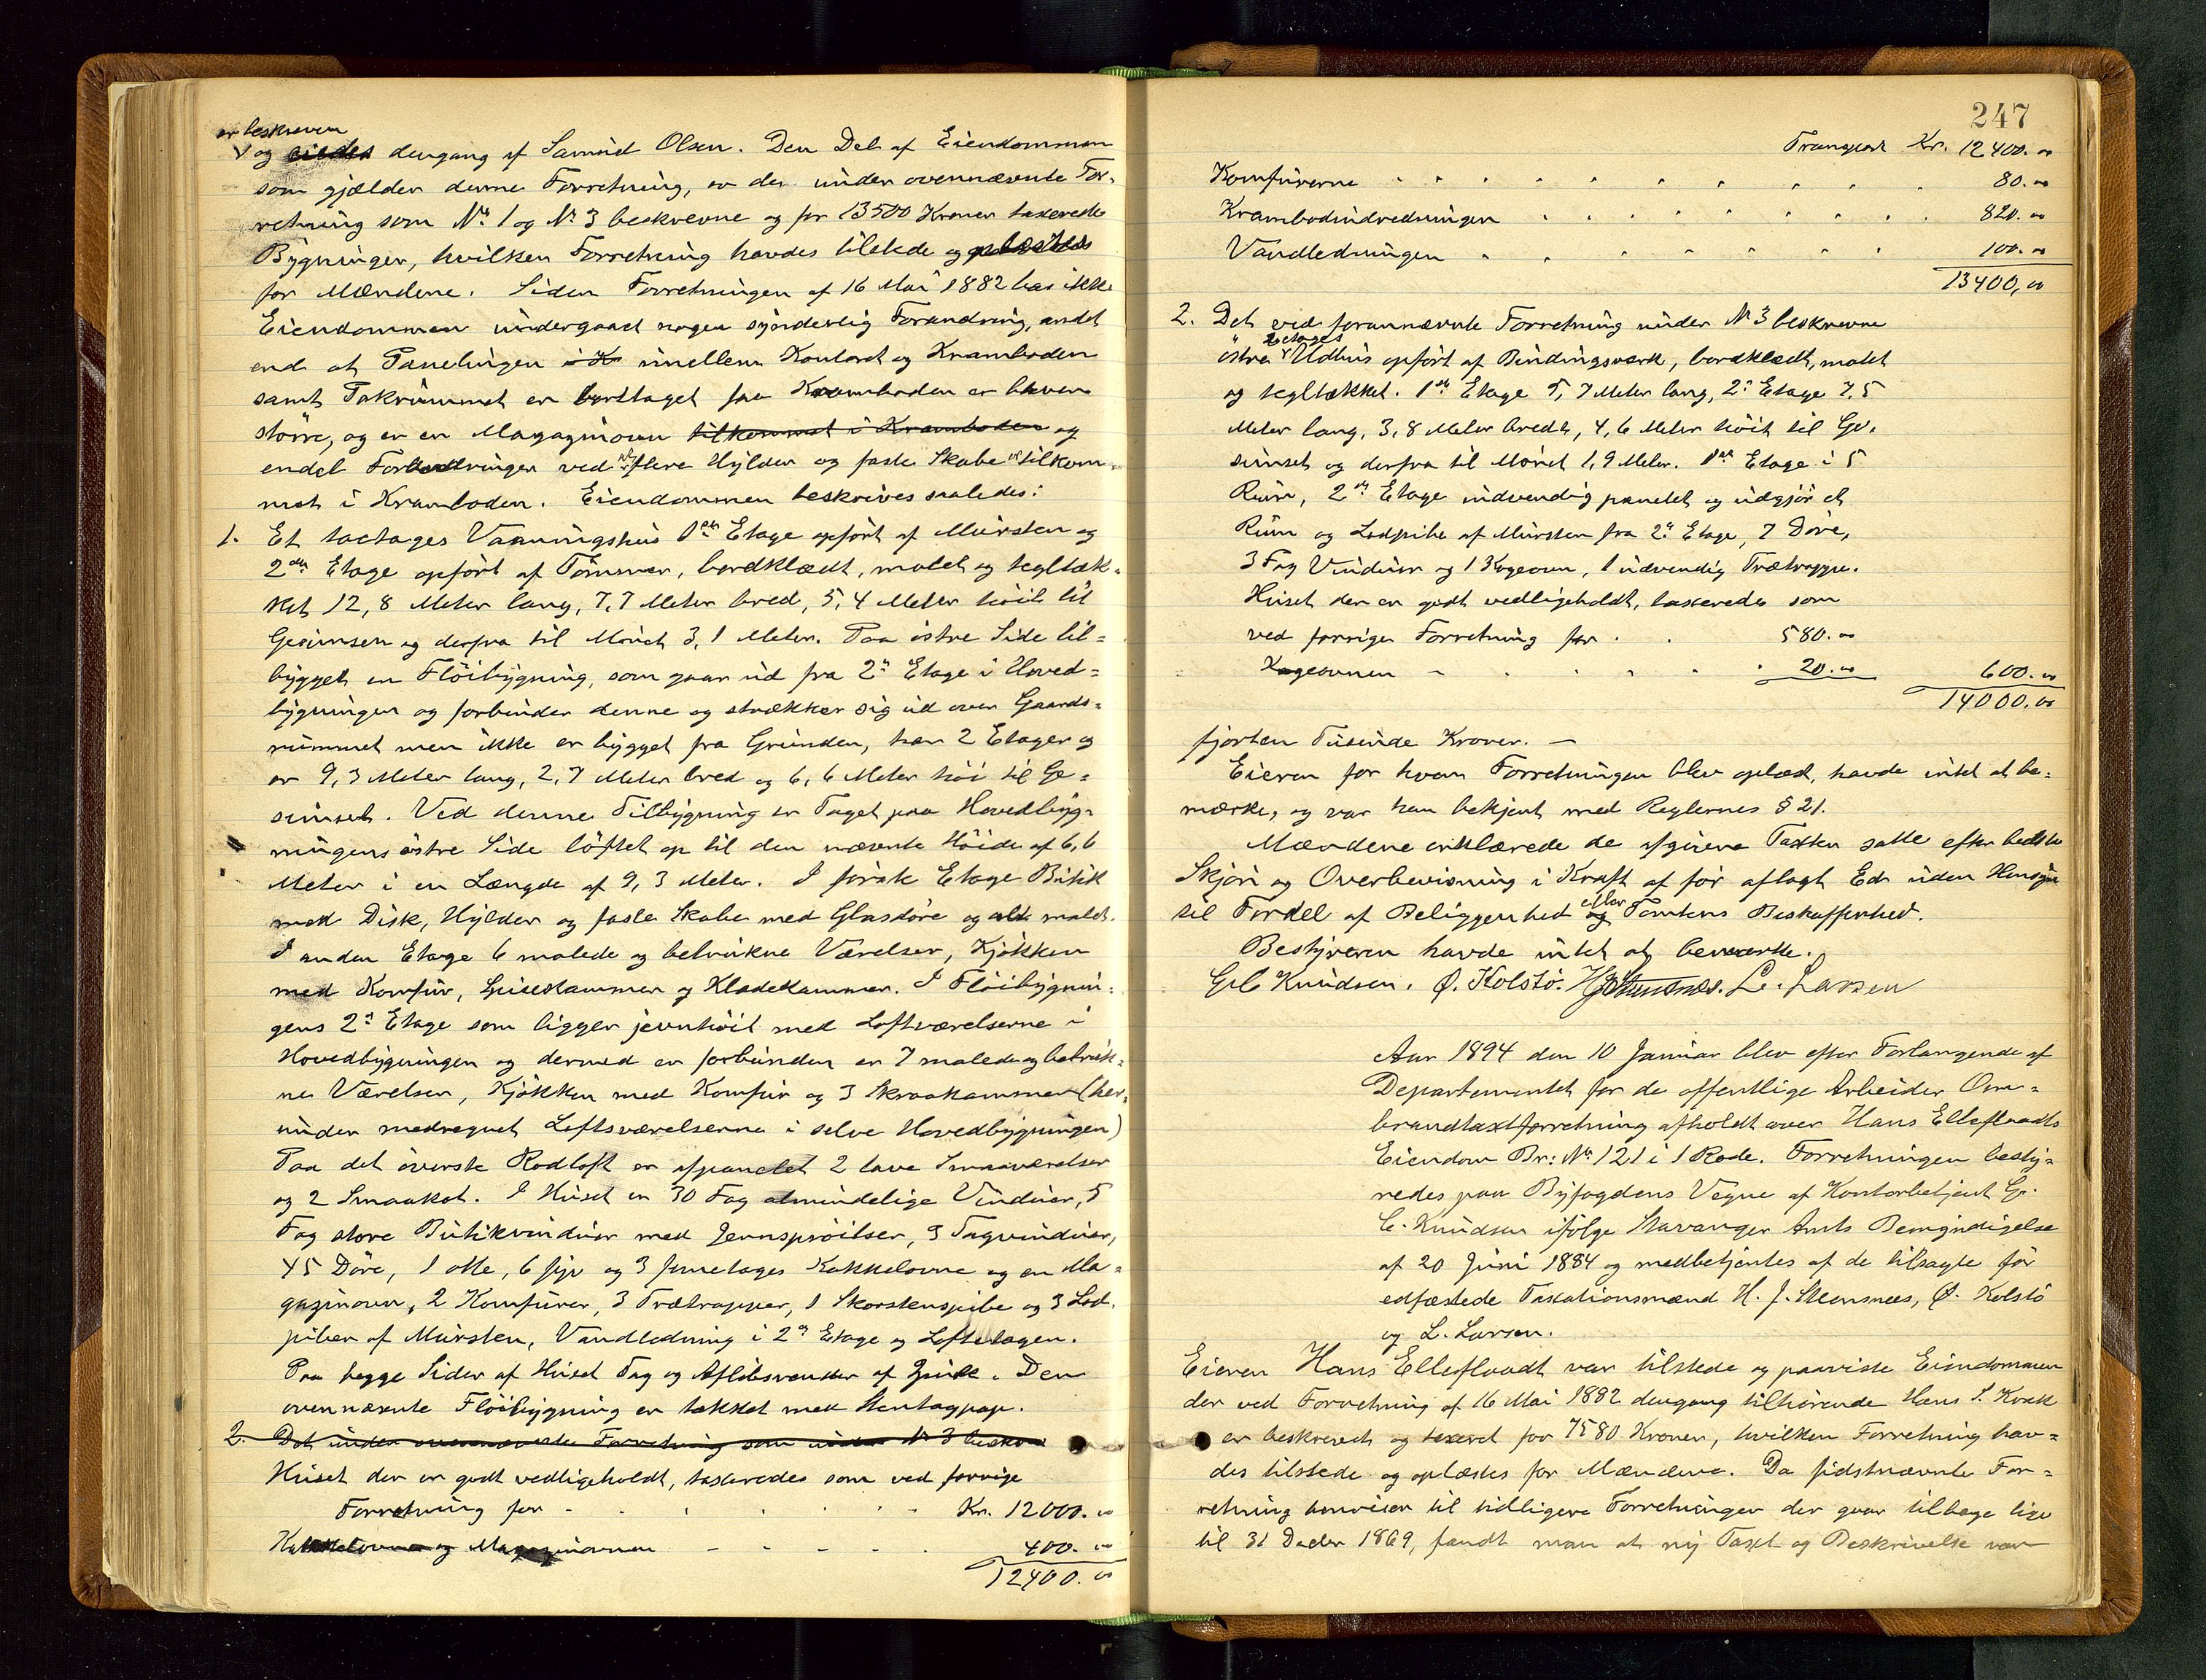 er beskreven
og eiedes dengang af Samuel Olsen. Den Del af Eiendommen
som gjælder denne Forretning, er der under ovennævnte For-
retning som No 1 og No 3 beskrevne og for 13500 Kroner taxerede
Bygninger, hvilken Forretning havdes tilstede og oplæstes
for Mændene. Siden Forretningen af 16 Mai 1882 har ikke
Eiendommen undergaaet nogen synderlig Forandring, andet
end at Panelingen i K imellem Kontoret og Kramboden
samt Takrummet er borttaget saa Kramboden er bleven
större, og er en Magazinovn tilkommet i Kramboden og
endel Forbedringer ved flere Hylder og faste Skabe er tilkom-
met i Kramboden. Eiendommen beskrives saaledes:
1. Et toetages Vaaningshus 1ste Etage opfört af Mursten og
2den Etage opfört af Tömmer, bordklædt, malet og tegltæk-
ket 12,8 Meter lang, 7,7 Meter bred, 5,4 Meter höit til
Gesimsen og derfra til Mönet 3,1 Meter. Paa östre Side til-
bygget en Flöibygning, som gaar ud fra 2den Etage i Hoved-
bygningen og forbinder denne og strækker sig ud over Gaards-
rummet men ikke er bygget fra Grunden, har 2 Etager og
er 9,3 Meter lang, 2,7 Meter bred og 6,6 Meter höi til Ge-
simset. Ved denne Tilbygning er Taget paa Hovedbyg-
ningens östre Side löftet op til den nævnte Höide af 6,6
Meter i en Længde af 9,3 Meter. I förste Etage Butik
med Disk, Hylder og faste Skabe med Glasdöre og alt malet.
I anden Etage 6 malede og betrukne Værelser, Kjökken
med Komfur, Spisekammer og Klædekammer. I Flöibygnin-
gens 2den Etage som ligger jevnhöit med Loftværelserne i
Hovedbygningen og dermed er forbunden er 7 malede og betruk-
ne Værelser, Kjökken med Komfur og 3 Skraakammer (her-
under medregnet Loftsværelserne i selve Hovedbygningen)
Paa det överste Rodloft er afpanelet 2 lave Smaaværelser
og 2 Smaakot. I Huset er 30 Fag almindelige Vinduer, 5
Fag store Butikvinduer med Jernsproilser, 3 Tagvinduer,
45 Döre, 1 otte, 6 fyr og 3 femetages Kakkelovne og en Ma-
gazinovn, 2 Komfurer, 3 Trætrapper, 1 Skorstenspibe og 3 Lod-
piber af Mursten, Vandledning i 2den Etage og Loftetagen.
Paa begge Sider af Huset Tag og Aflöbsrender af Zink. Den
ovennævnte Flöibygning er tækket med Stentagpap.
2. Det under ovennævnte Forretning som under No 3 beskrev
Huset der er godt vedligeholdt, taxeredes som ved forrige
Forretning for Kr. 12000.00
Kakkelovne og Magazinovnen 400.00
12400.00
247
Transport Kr. 12400.00
Komfurerne 80.00
Krambodindredningen 820.00
Vandledningen 100.00
13400,00
2. Det ved forannævnte Forretning under No 3 beskrevne
2etages
östre Udhus opfört af Bindingsværk, bordklædt, malet
og tegltækket. 1ste Etage 5,7 Meter lang, 2den Etage 7,5
Meter lang, 3,8 Meter bredt, 4,6 Meter höit til Ge-
simset og derfra til Mönet 1,9 Meter. 1ste Etage i 5
Rum, 2den Etage indvendig panelet og udgjör et
Rum og Lodpibe af Mursten fra 2den Etage, 7 Döre,
3 Fag Vinduer og 1 Kogeovn, 1 udvendig Trætrappe.
Huset der er godt vedligeholdt, taxeredes som
ved forrige Forretning for 580.00
Kogeovnen 20.00 600.00
14000.00
fjorten Tusinde Kroner. —
Eieren for hvem Forretningen blev oplæst, havde intet at be-
mærke, og var han bekjent med Reglernes § 21.
Mændene erklærede de afgivne Taxter satte efter bedste
Skjön og Overbevisning i Kraft af för aflagt Ed uden Hensyn
til Fordel af Beliggenhed og eller Tomtens Beskaffenhed.
Bestyreren havde intet at bemærke.
G. C. Knudsen. Ø. Kolstö. H J Stensnæs. L. Larsen
Aar 1894 den 10 Januar blev efter Forlangende af
Departementet for de offentlige Arbeider Om-
brandtaxtforretning afholdt over Hans Elleflaadts
Eiendom Br: No 121 i 1 Rode. Forretningen besty-
redes paa Byfogdens Vegne af Kontorbetjent G.
C. Knudsen ifölge Stavanger Amts Bemyndigelse
af 20 Juni 1884 og medbetjentes af de tilsagte för
edfæstede Taxationsmænd H. J. Stensnæs, Ø. Kolstö
og L. Larsen.
Eieren Hans Elleflaadt var tilstede og paaviste Eiendommen
der ved Forretning af 16 Mai 1882 dengang tilhörende Hans S. Kvak
er beskrevet og taxeret for 7580 Kroner, hvilken Forretning hav-
des tilstede og oplæstes for Mændene. Da sidstnævnte For-
retning henviser til tidligere Forretninger der gaar tilbage lige
til 31 Decbr 1869, fandt man at ny Taxt og Beskrivelse var